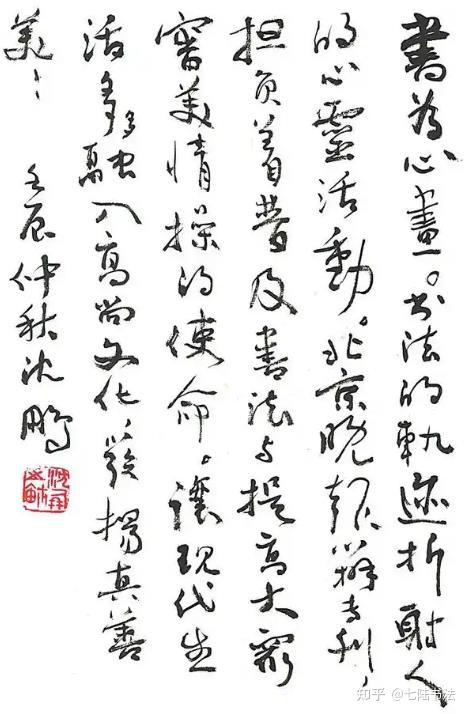 書为心畫。书法的軌迹折射人
的心靈活動。北京晚报辦专刊,
担负着普及書法与提高大众
審美情操的使命。讓現代生
活多多融入高尚文化,發揚真善
美:
壬辰仲秋沈鹏
知乎 @七陆书法